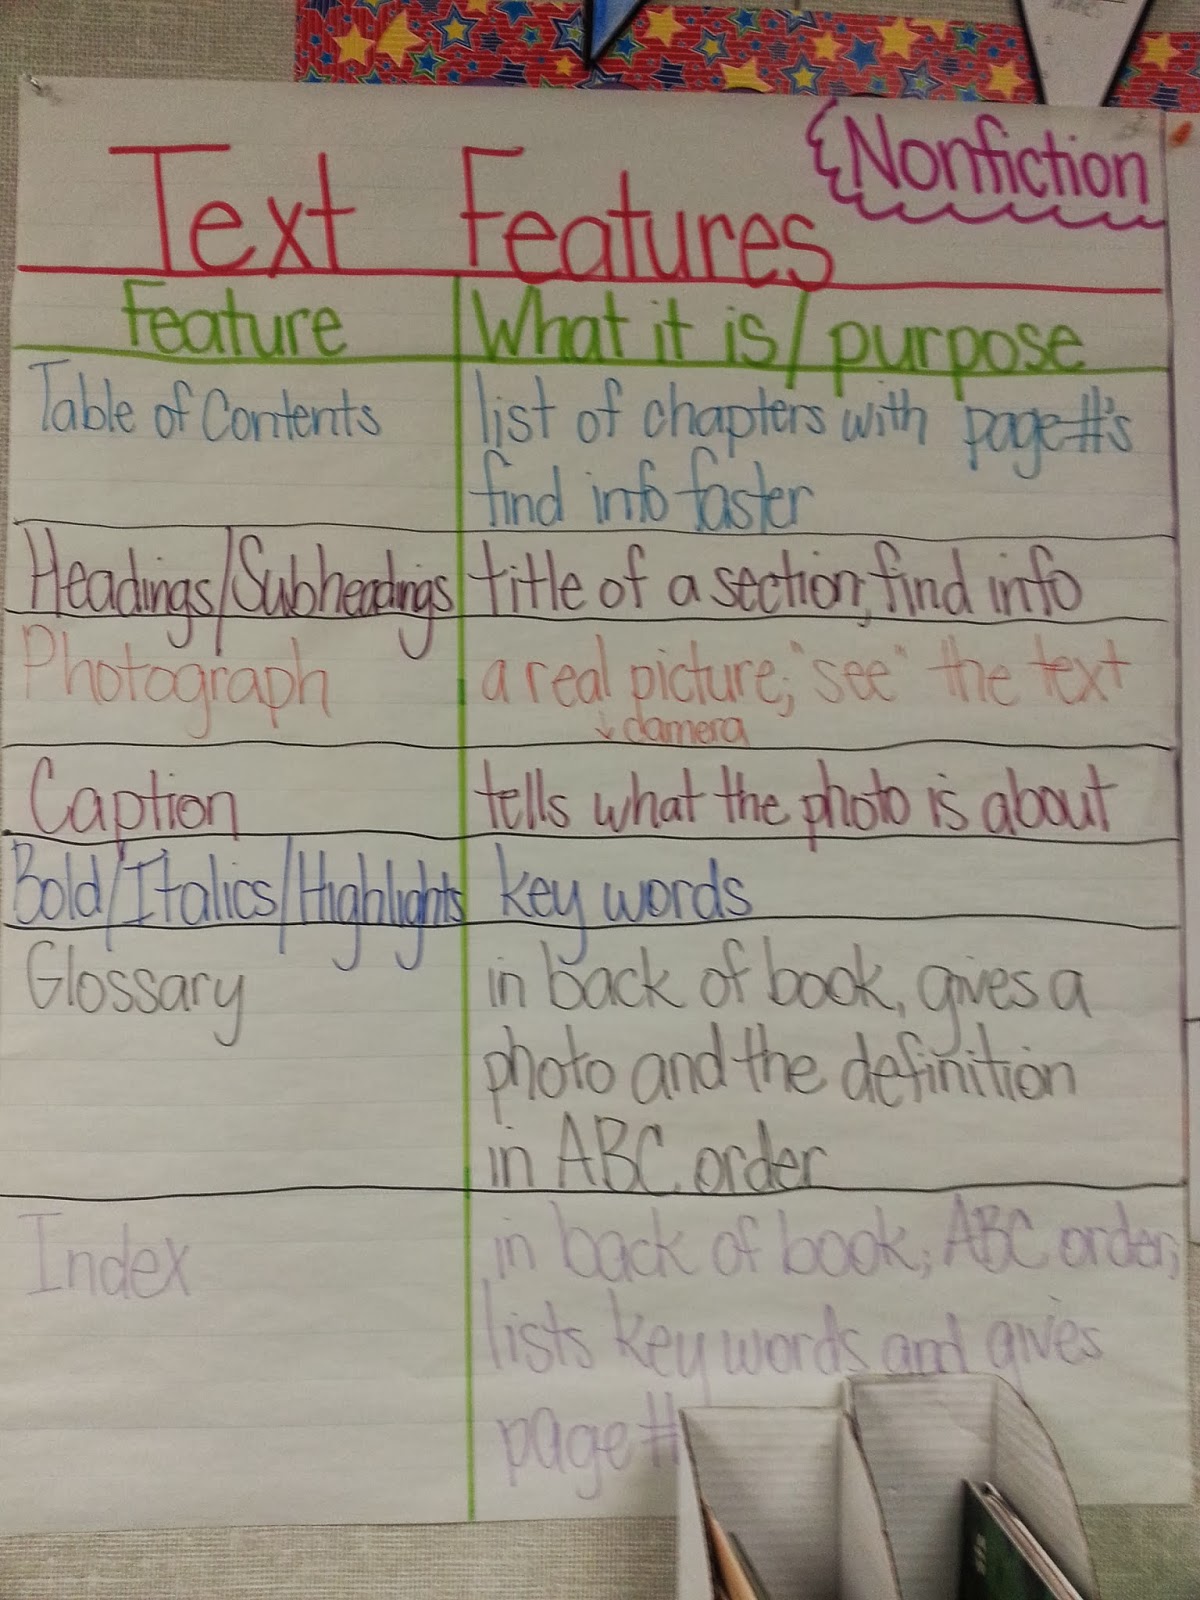 Nonfiction
Text Features
Feature
What it is/purpose
Table of Contents
list of chapters with page#'s
find info faster
Headings/Subheadings
title of a section, find info
Photograph
a real picture; "see" the text
↓ camera
Caption
tells what the photo is about
Bold/Italics/Highlights
key words
Glossary
in back of book, gives a
photo and the definition
in ABC order
Index
in back of book; ABC order;
lists key words and gives
page #